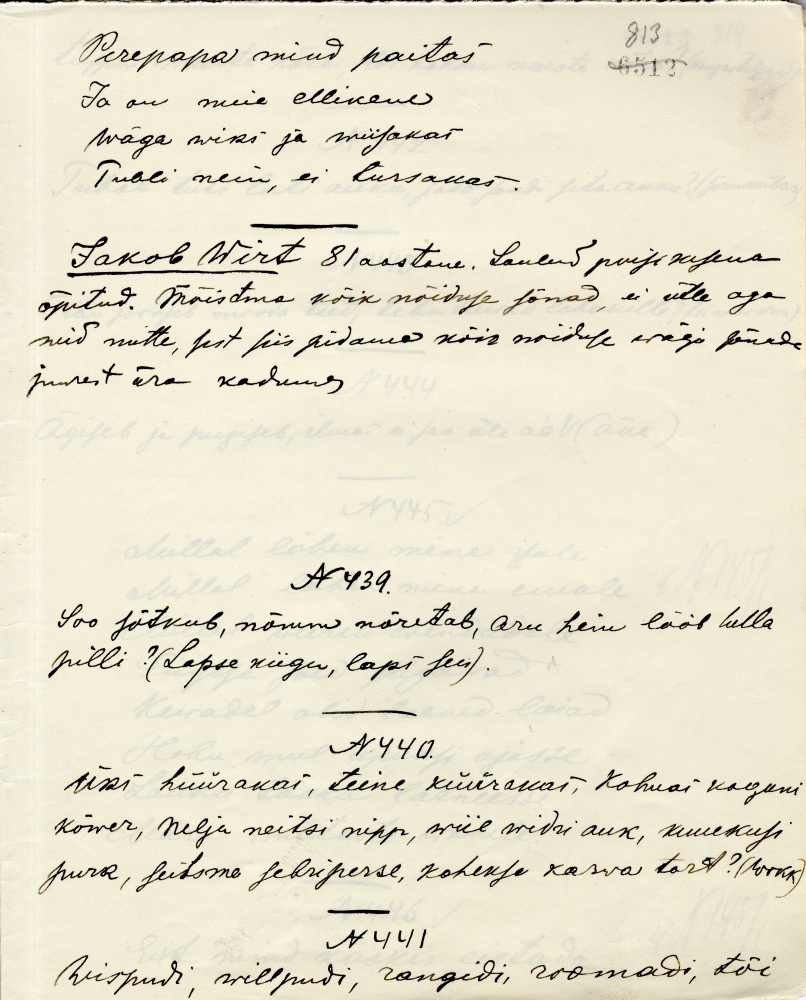 813
6512
Perepapa mind paitas
Ja on meie ellikene
Wäga wiks ja wiisakas
Tubli nein, ei tursakas.
Jakob Wirt 81 aastane. Laulud poisikesena
õpitud. Mõistma kõik nõiduse sõnad, ei ütle aga
neid mitte, sest siis pidama kõik noiduse wägi sõnade
juurest ära kaduma
N 439.
Soo sõtkub, nõmm nõretab, aru hein lööb lulla
pilli? (Lapse kiigu, laps sees).
N 440.
Üks hüürakas, teine küürakas, Kolmas koguni
kõwer, Nelja neitsi nipp, wiie widri auk, kuuekusi
purk, seitsme sebriperse, kaheksa karwa tort? (Wokk)
N 441
Wispudi, willpudi, rangidi, roomadi, tõi